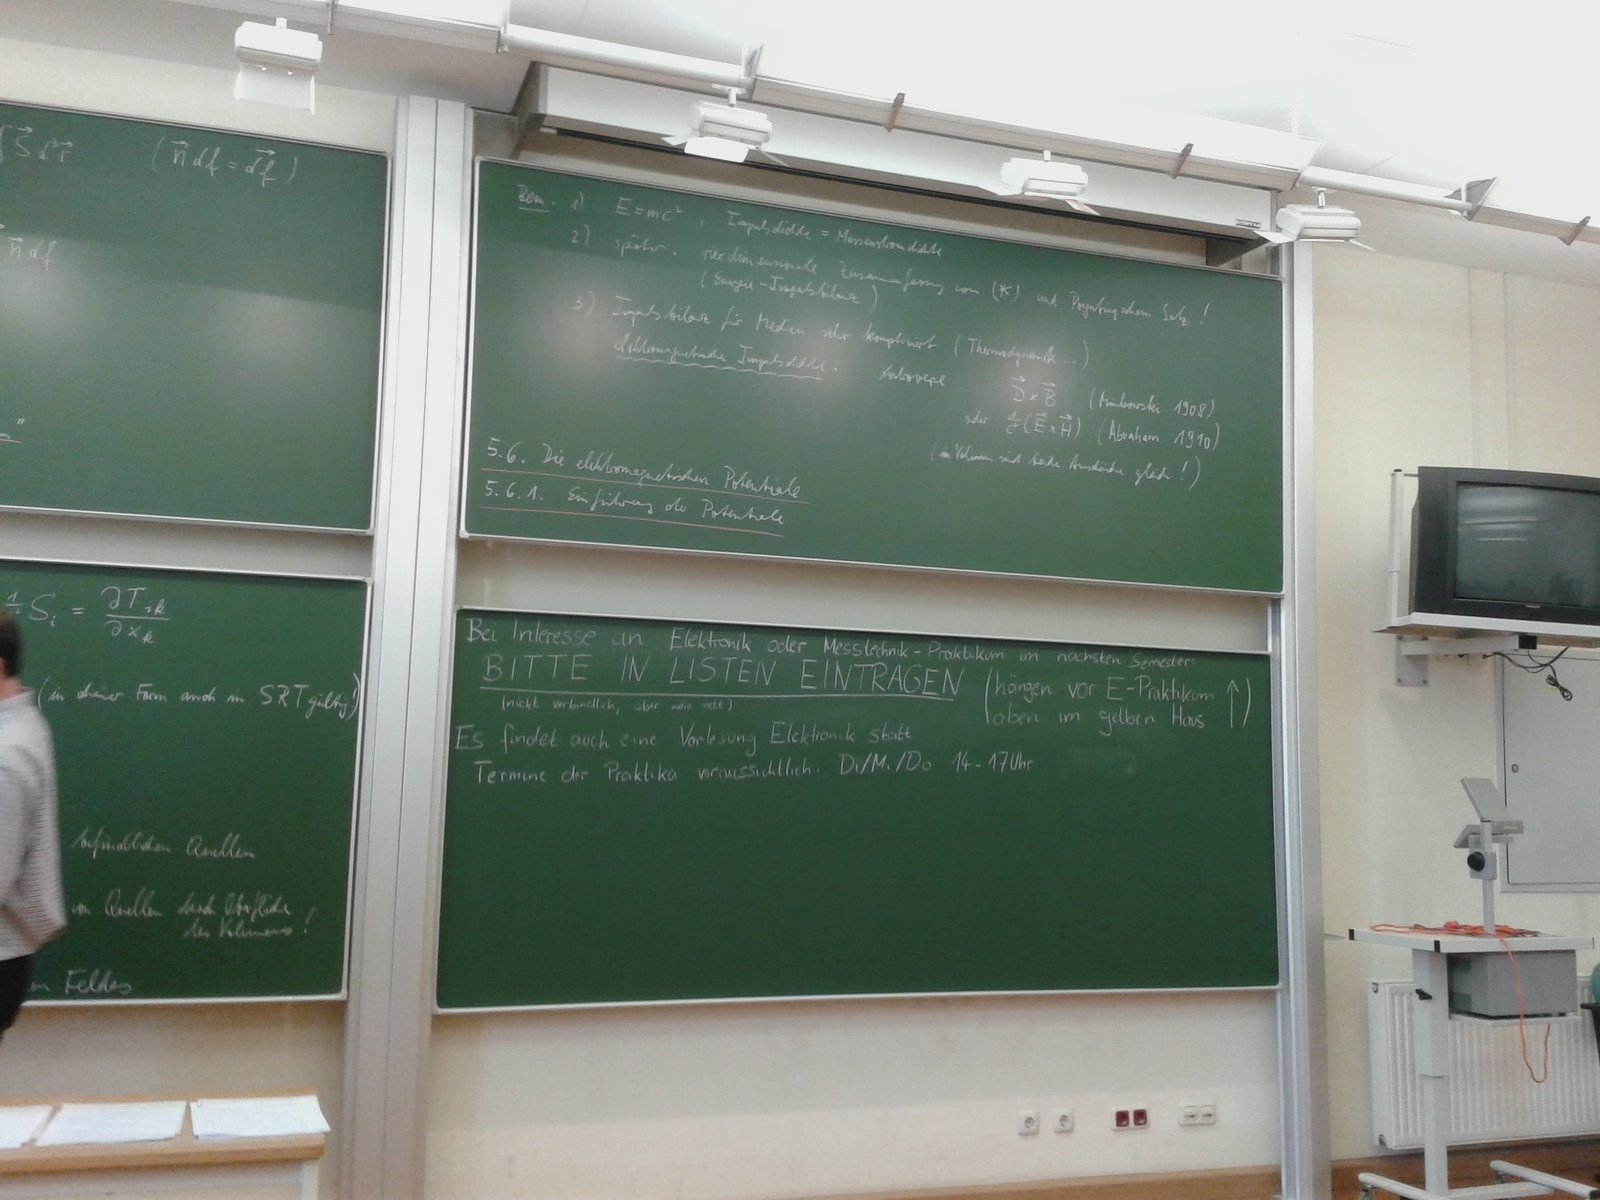 ∫ S⃗ d³r⃗ (n⃗ df = d⃗f)
n⃗ df
1 Sᵢ = ∂Tᵢₖ / ∂xₖ
(in dieser Form auch in SRT gültig!)
befindlichen Quellen
von Quellen durch Oberfläche
des Volumens!
en Feldes
Bem. 1) E=mc², Impulsdichte = Massenstromdichte
2) später: vierdimensionale Zusammenfassung von (*) und Poyntingschem Satz!
(Energie-Impulsbilanz)
3) Impulsbilanz für Medien sehr kompliziert (Thermodynamik...)
elektromagnetische Impulsdichte: kontrovers D⃗ × B⃗ (Minkowski 1908)
oder 1/c² (E⃗ × H⃗) (Abraham 1910)
(im Vakuum sind beide Ausdrücke gleich!)
5.6. Die elektromagnetischen Potentiale
5.6.1. Einführung der Potentiale
Bei Interesse an Elektronik oder Messtechnik-Praktikum im nächsten Semester:
BITTE IN LISTEN EINTRAGEN (hängen vor E-Praktikum ↑)
(nicht verbindlich, aber wäre nett) oben im gelben Haus
Es findet auch eine Vorlesung Elektronik statt
Termine der Praktika voraussichtlich: Di/Mi/Do 14-17 Uhr